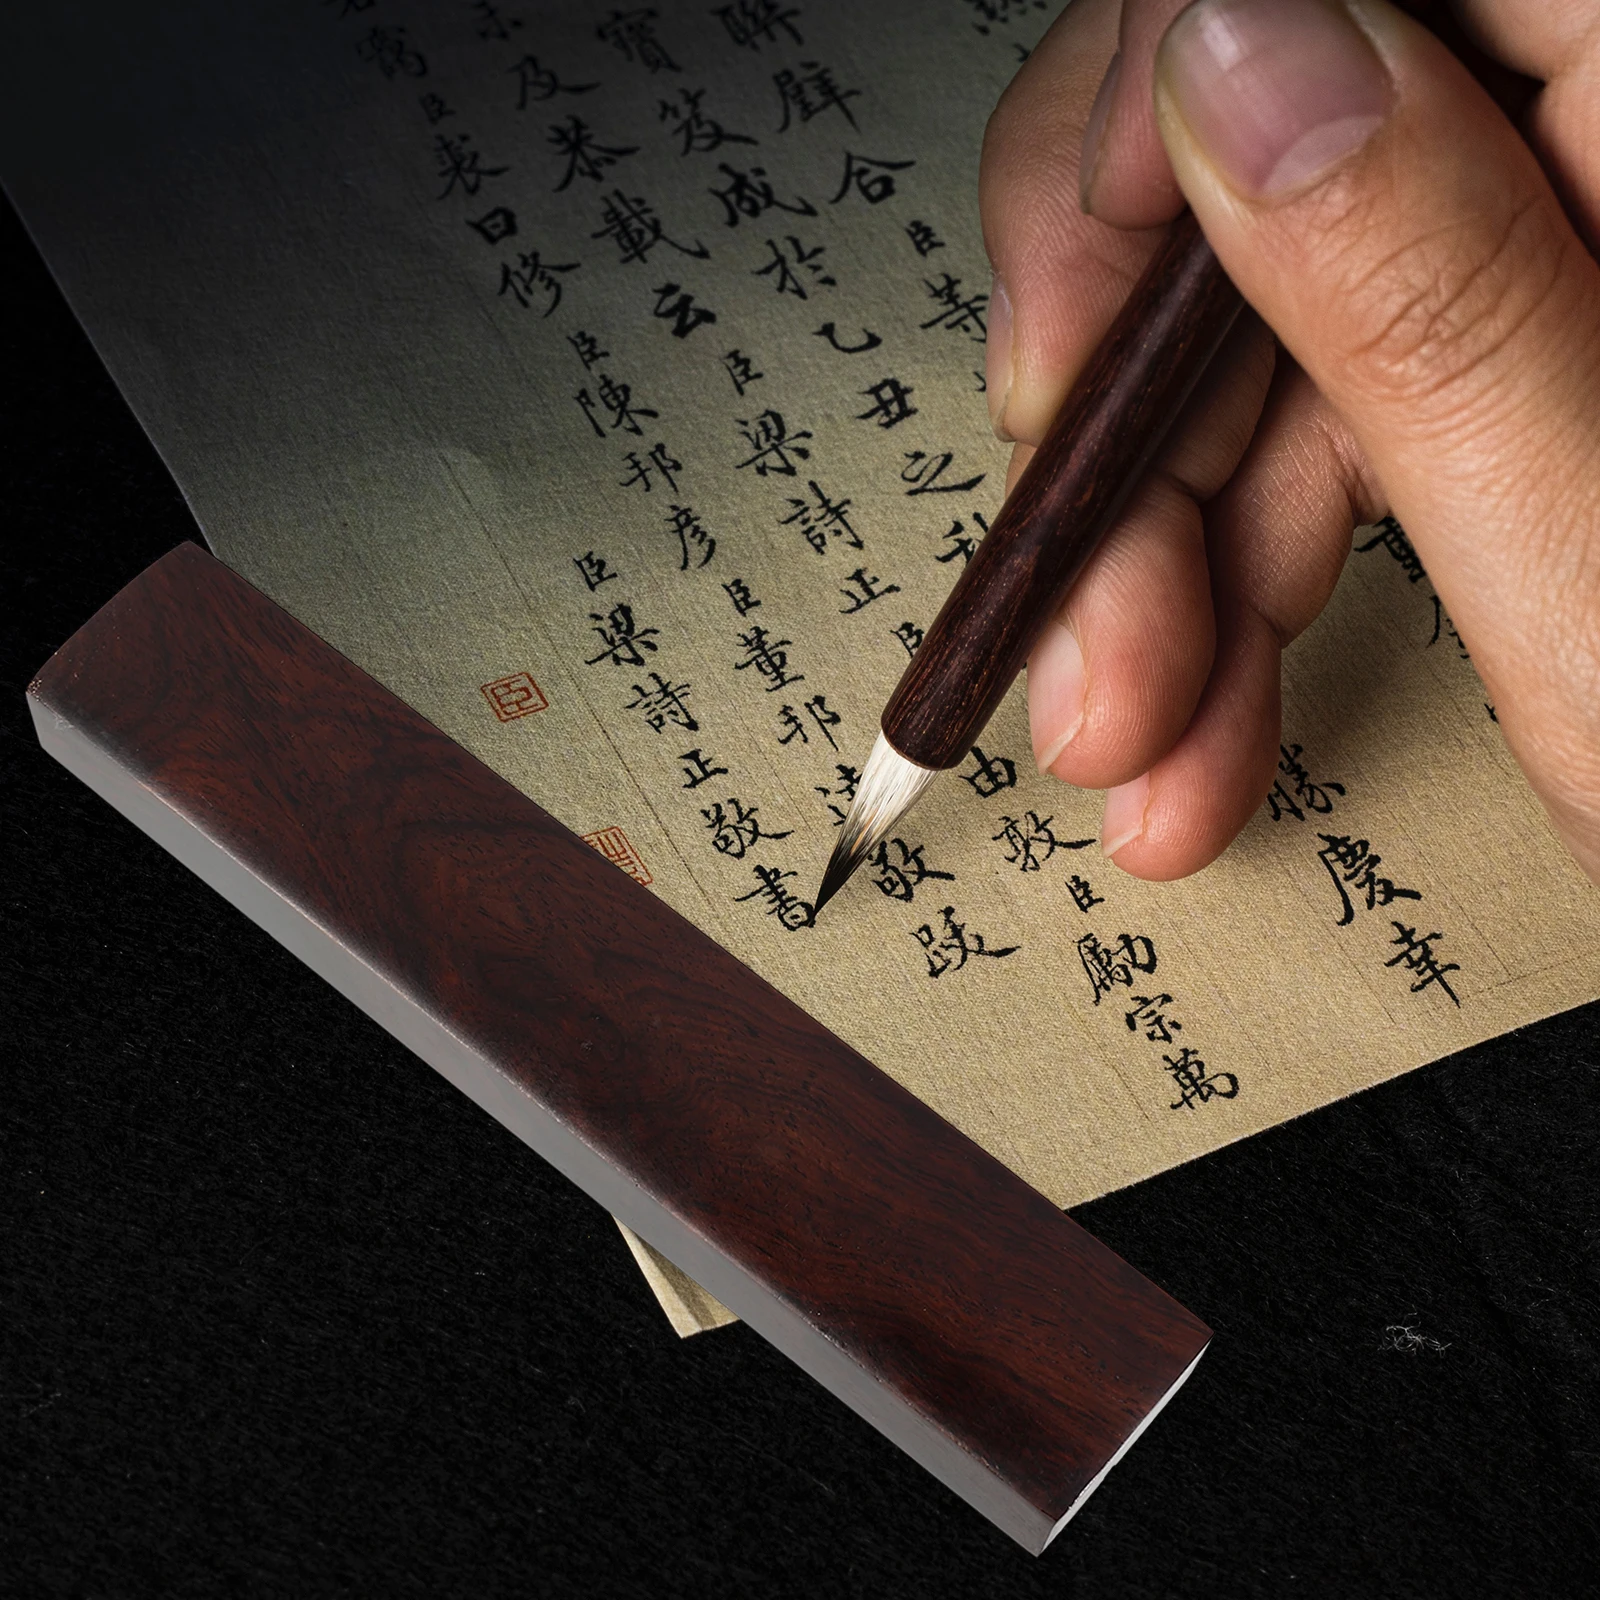 聯璧合臣等
勝慶幸
寶笈成於乙丑之秋
未及恭載云臣梁詩正臣由敦臣勵宗萬
臣裘曰修臣陳邦彥臣董邦達敬跋
臣梁詩正敬書
臣